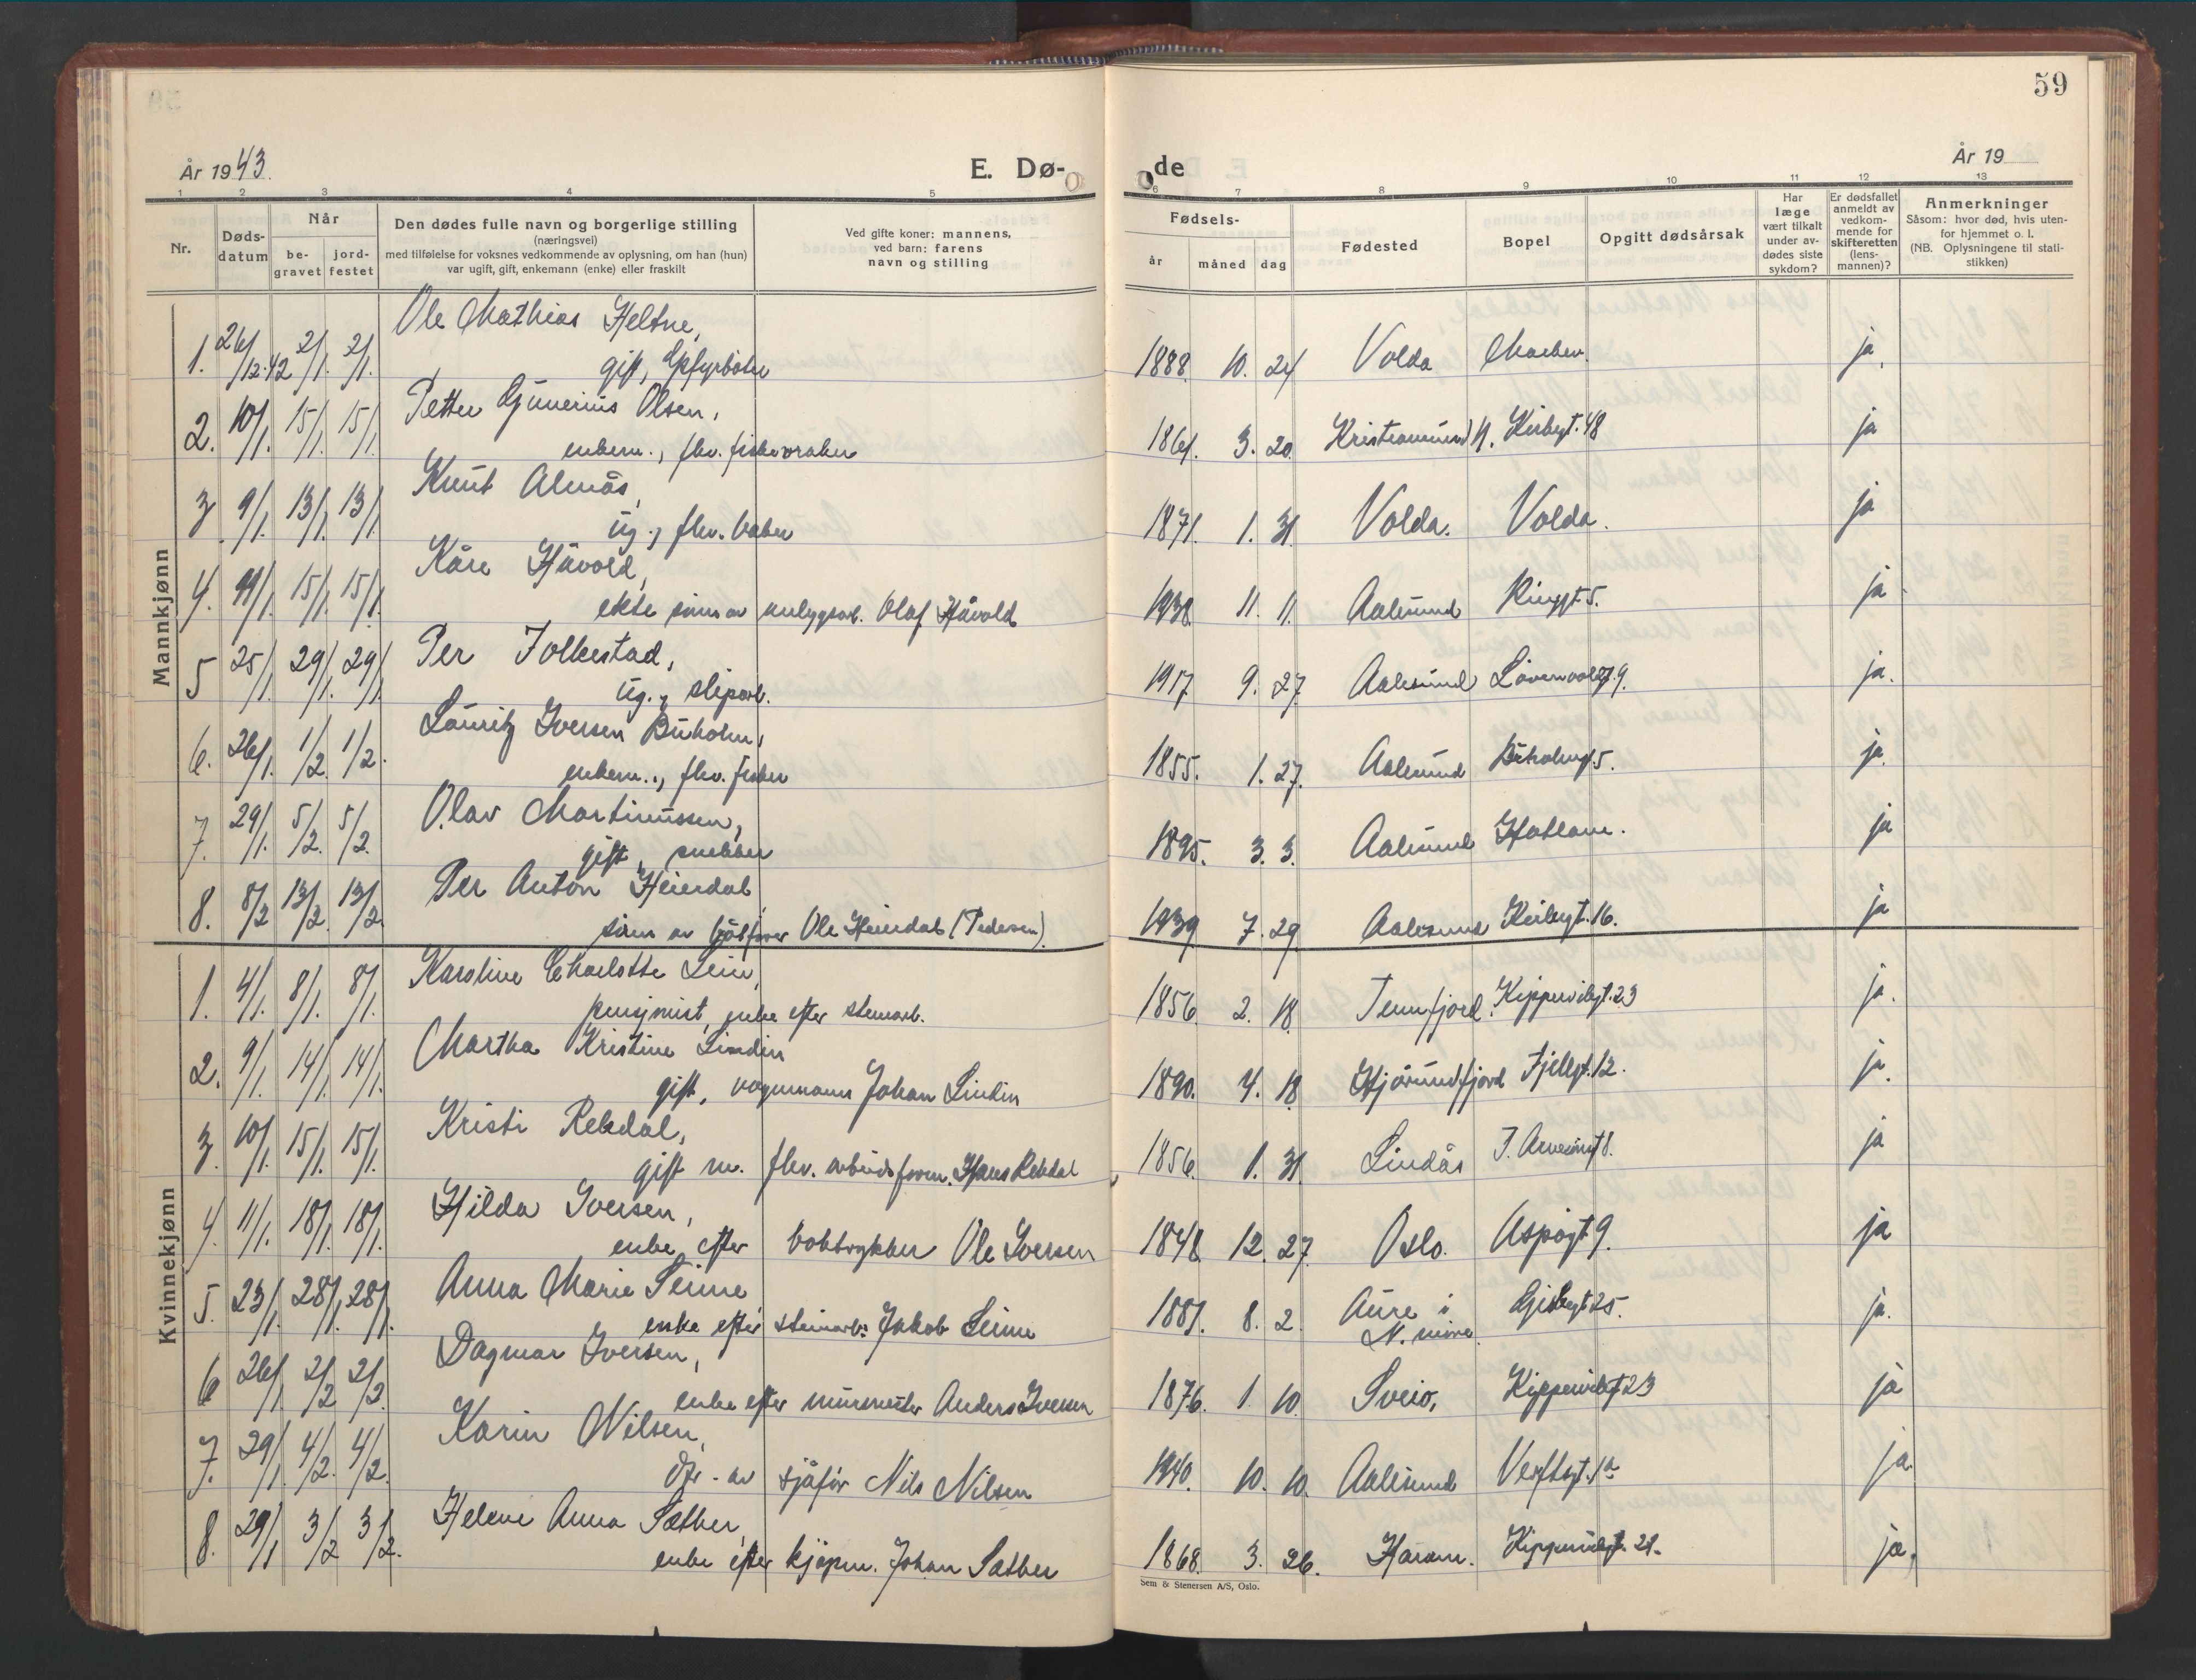 59
År 1943.
E. Dø-
de
År 19
1 2 3 4 5 6 7 8 9 10 11 12 13
Nr.
Døds-
datum
Når
be-
gravet
jord-
festet
Den dødes fulle navn og borgerlige stilling
(næringsvei)
med tilføielse for voksnes vedkommende av oplysning, om han (hun)
var ugift, gift, enkemann (enke) eller fraskilt
Ved gifte koner: mannens,
ved barn: farens
navn og stilling
Fødsels-
år måned dag
Fødested
Bopel
Opgitt dødsårsak
Har
læge
vært tilkalt
under av-
dødes siste
sykdom?
Er dødsfallet
anmeldt av
vedkom-
mende for
skifteretten
(lens-
mannen)?
Anmerkninger
Såsom: hvor død, hvis uten-
for hjemmet o. l.
(NB. Oplysningene til stati-
stikken)
Mannkjønn
Ole Mathias Heltne,
1. 26/12.42 2/1. 2/1. gift, 1888. 10. 24 Volda ja.
Petter Gunerius Olsen,
2. 10/1. 15/1. 15/1. enkem., fhv. fiskevraker 1861. 3. 20. Kristiansund N. Kirkegt. 48 ja
Knut Almås,
3 9/1. 13/1. 13/1. ug., fhv. baker 1871. 1. 31. Volda. Volda. ja
Kåre Håvold,
4. 11/1. 15/1. 15/1. ekte sønn av anlegsarb. Olaf Håvold 1938. 11. 11. Aalesund Ringgt. 5. ja
Per Folkestad,
5 25/1. 29/1. 29/1. ug., sliparb. 1917. 9. 27. Aalesund Løvenvoldgt. 9. ja.
Lauritz Iversen Buholm,
6. 26/1. 1/2. 1/2. enkem., fhv. fisker 1855. 1. 27. Aalesund Buholmgt. 5. ja.
Olav Martinussen,
7. 29/1. 5/2. 5/2. gift, snekker 1895. 3. 3. Aalesund Hatlane. ja
Per Anton Heierdal,
8. 8/2 13/2. 13/2. sønn av båtfører Ole Heierdal (Pedersen). 1939. 7. 29. Aalesund Kirkegt. 16. ja
Kvinnekjønn
Karoline Charlotte Lein,
1. 4/1. 8/1. 8/1. pensjonist, enke efter stenarb. 1856. 2. 18. Tennfjord. Kippervikgt. 23 ja.
Martha Kristine Lindin
2. 9/1. 14/1. 14/1. gift, vognmann Johan Lindin 1890. 4. 18. Hjørundfjord Fjellgt. 12. ja.
Kristi Rekdal,
3. 10/1. 15/1. 15/1. gift m. fhv. arbeidsform. Hans Rekdal 1856. 1. 31. Lindås ja
Hilda Iversen,
4. 11/1. 18/1. 18/1. enke efter boktrykker Ole Iversen 1848. 12. 27. Oslo. Aspøgt 9. ja
Anna Marie Seime
5. 23/1. 28/1. 28/1. enke efter stenarb. Jakob Seime 1881. 8. 2. Aure i
N. møre. 25. ja.
Dagmar Iversen,
6 26/1 2/2 2/2. enke efter murmester Anders Iversen 1876. 1. 10. Sveio, Kippervikgt. 23 ja
Karin Nilsen,
7. 29/1. 4/2. 4/2. dtr. av sjåfør Nils Nilsen 1940. 10. 10. Aalesund Verftsgt. 1a ja.
Helene Anna Sæther,
8. 29/1 3/2 3/2. enke efter kjøpm. Johan Sæther 1868. 3. 26. Haram. Kippervikgt. 21. ja.
Sem & Stenersen A/S, Oslo.